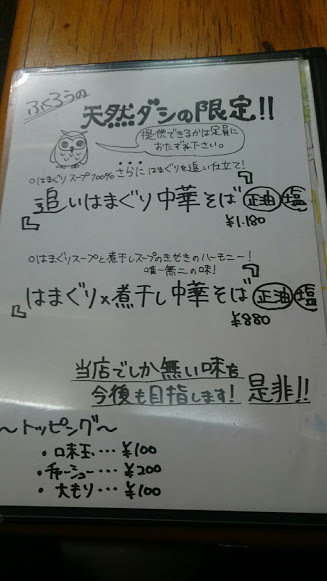 ふくろうの
天然ダシの限定!!
提供できるかは定員に
おたずね下さい。
○はまぐりスープ100% さらに はまぐりを追い仕立て!
『追いはまぐり中華そば』 正油 塩
¥1.180
○はまぐりスープと煮干しスープのきせきのハーモニー!
唯一無二の味!
『はまぐり×煮干し中華そば』 正油 塩
¥880
当店でしか無い味を
今後も目指します! 是非!!
～トッピング～
・口味玉…¥100
・チャーシュー…¥200
・大もり…¥100